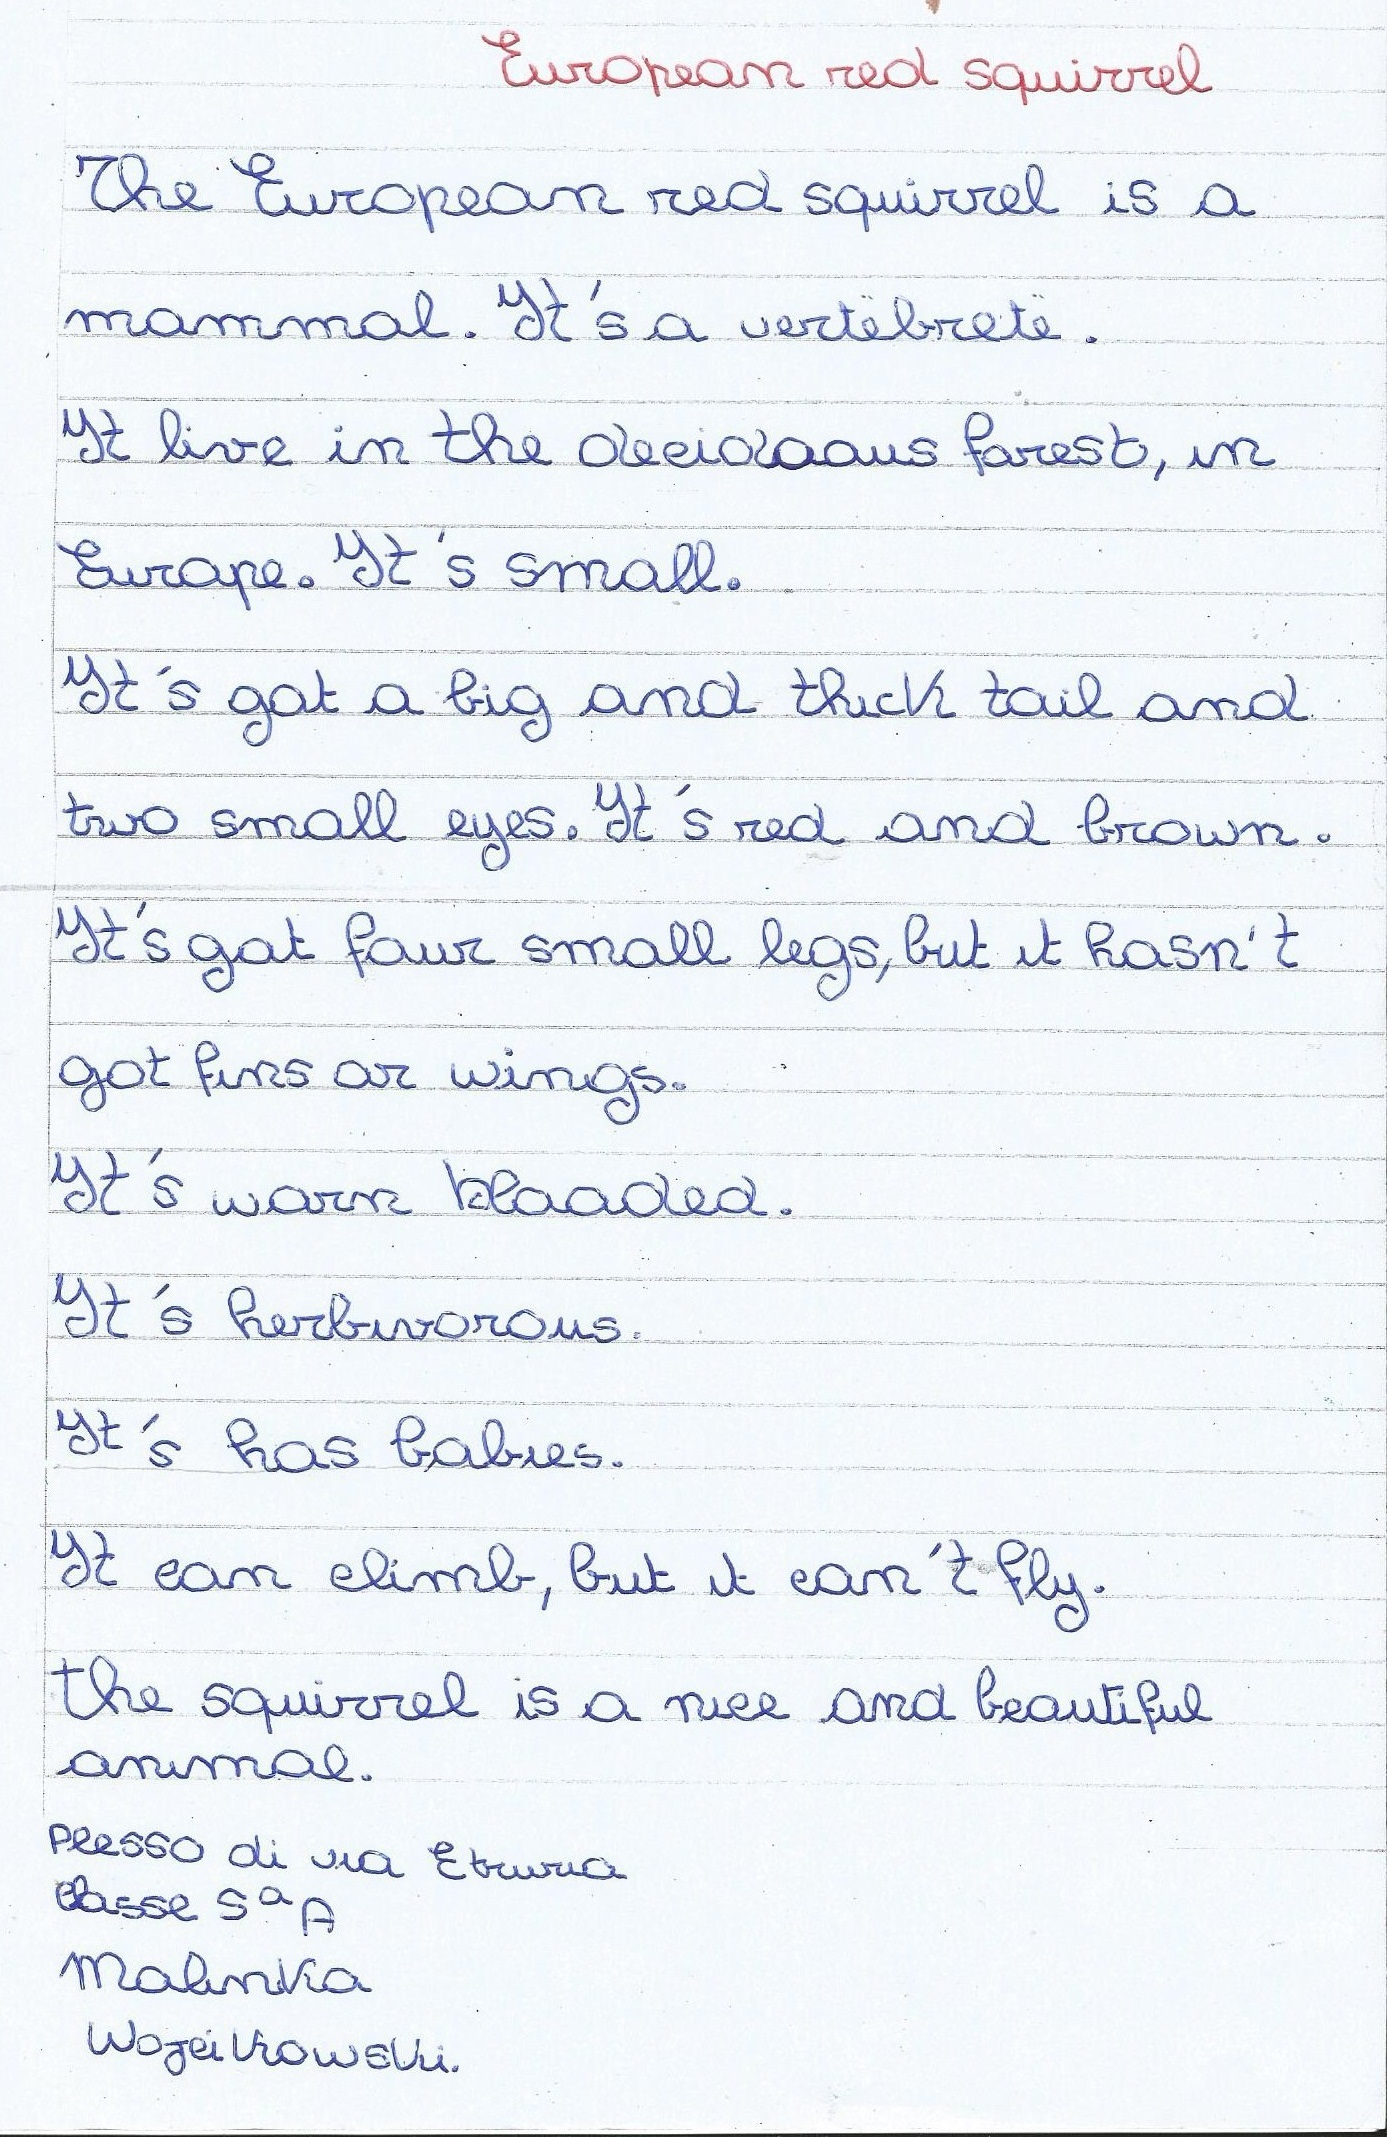 European red squirrel
The European red squirrel is a
mammal. It's a vertëbretë.
It live in the decidaaus farest, in
Eurape. It's small.
It's gat a big and thick tail and
two small eyes. It's red and brown.
It's gat faur small legs, but it hasn't
got fins ar wings.
It's warn blaaded.
It's herbivorous.
It's has babies.
It can climb, but it can't fly.
the squirrel is a nice and beautiful
animal.
Plesso di via Etruria
Classe 5ª A
Malinka
Wojcikowski.